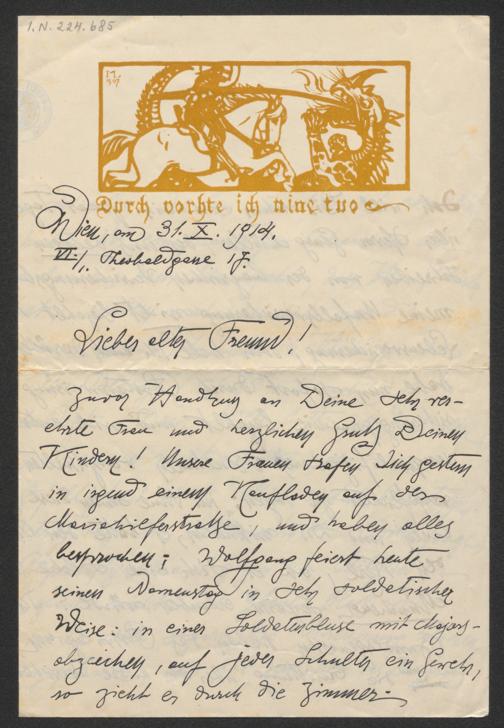 I.N. 224.685
Durch vorhte ich nine tuo
Wien, am 31. X. 1914.
VI./1. Theobaldgasse 17.
Lieber alter Freund!
Zuvor Handkuss an Deine sehr ver-
ehrte Frau und herzlichen Gruß Deinen
Kindern! Unsere Frauen trafen sich gestern
in irgend einem Kaufladen auf der
Mariahilferstraße, und haben alles
besprochen; Wolfgang feiert heute
seinen Namenstag in sehr soldatischer
Weise: in einer Soldatenbluse mit Majors-
abzeichen, auf jeder Schulter ein Gewehr,
so zieht er durch die Zimmer.